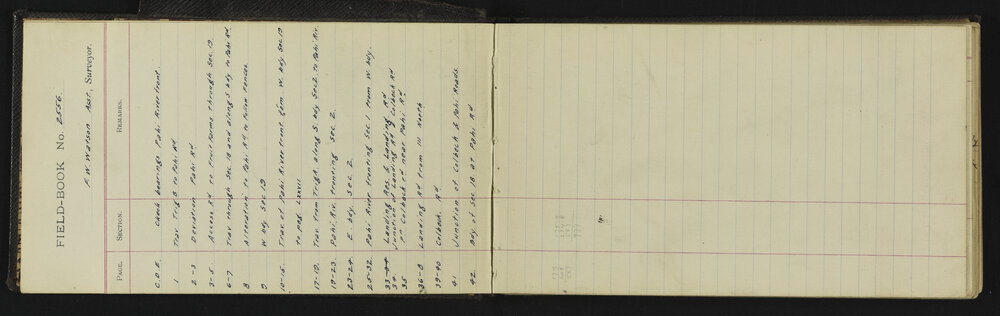 FIELD-BOOK No. 2556
F. W. Watson Asst., Surveyor.
PAGE. SECTION. REMARKS.
C.D.E. Check bearings Pahi River front.
1 Trav. Trig B to Pahi Rd
2-3 Deviation Pahi Rd
3-5 Access Rd to Fruit Farms through Sec. 19
6-7 Trav. through Sec. 18 and along S bdy to Pahi Rd
8 Alteration to Pahi Rd to follow fences.
9 W. bdy Sec 19
10-16 Trav. of Pahi River front from W. bdy Sec. 19
to peg LXXVII
17-19. Trav. from Trig A along S. bdy Sec 2. to Pahi Riv.
19-23. Pahi Riv. fronting Sec. 2.
23-24. E. bdy. Sec. 2
25-32. Pahi River fronting Sec. 1 from W. bdy.
33-34 Landing Res. & Landing Rd
34 Junction of Landing Rd & Colbeck Rd
35 Colbeck Rd near Pahi Rd
36-8 Landing Rd from III North
39-40 Colbeck Rd
41 Junction of Colbeck & Pahi Roads.
42. Bdy of Sec 18 at Pahi Rd